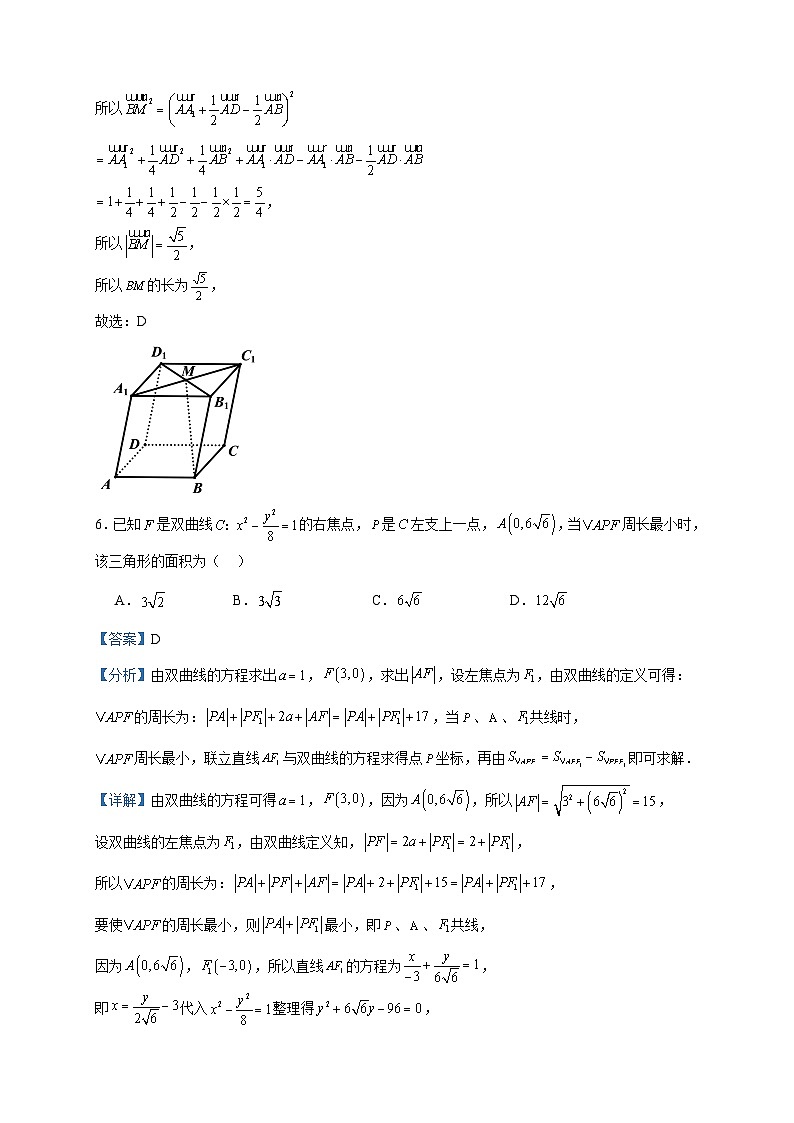 所以 $\overrightarrow{BM}^2=\left(\overrightarrow{AA_1}+\frac{1}{2}\overrightarrow{AD}-\frac{1}{2}\overrightarrow{AB}\right)^2$
$=\overrightarrow{AA_1}^2+\frac{1}{4}\overrightarrow{AD}^2+\frac{1}{4}\overrightarrow{AB}^2+\overrightarrow{AA_1}\cdot\overrightarrow{AD}-\overrightarrow{AA_1}\cdot\overrightarrow{AB}-\frac{1}{2}\overrightarrow{AD}\cdot\overrightarrow{AB}$
$=1+\frac{1}{4}+\frac{1}{4}+\frac{1}{2}-\frac{1}{2}-\frac{1}{2}\times\frac{1}{2}=\frac{5}{4}$,
所以 $|\overrightarrow{BM}|=\frac{\sqrt{5}}{2}$,
所以 BM 的长为 $\frac{\sqrt{5}}{2}$,
故选：D
D₁
C₁
M
A₁
B₁
D
C
A
B
6．已知 F 是双曲线 $C:x^2-\frac{y^2}{8}=1$ 的右焦点， P 是 C 左支上一点， $A(0,6\sqrt{6})$ ,当∨APF 周长最小时，
该三角形的面积为（ ）
A．$3\sqrt{2}$ B．$3\sqrt{3}$ C．$6\sqrt{6}$ D．$12\sqrt{6}$
【答案】D
【分析】由双曲线的方程求出 $a=1$， $F(3,0)$ ，求出 $|AF|$ ，设左焦点为 $F_1$，由双曲线的定义可得：
∨APF 的周长为：$|PA|+|PF_1|+2a+|AF|=|PA|+|PF_1|+17$ ，当 P 、A 、$F_1$共线时，
∨APF 周长最小，联立直线 $AF_1$ 与双曲线的方程求得点 P 坐标，再由 $S_{∨APF}=S_{∨AFF_1}-S_{∨PFF_1}$ 即可求解．
【详解】由双曲线的方程可得 $a=1$， $F(3,0)$ ，因为 $A(0,6\sqrt{6})$ ，所以 $|AF|=\sqrt{3^2+(6\sqrt{6})^2}=15$，
设双曲线的左焦点为 $F_1$，由双曲线定义知，$|PF|=2a+|PF_1|=2+|PF_1|$ ，
所以∨APF 的周长为：$|PA|+|PF|+|AF|=|PA|+2+|PF_1|+15=|PA|+|PF_1|+17$ ，
要使∨APF 的周长最小，则 $|PA|+|PF_1|$ 最小，即 P 、A 、$F_1$共线，
因为 $A(0,6\sqrt{6})$ ， $F_1(-3,0)$ ，所以直线 $AF_1$ 的方程为 $\frac{x}{-3}+\frac{y}{6\sqrt{6}}=1$，
即 $x=\frac{y}{2\sqrt{6}}-3$ 代入 $x^2-\frac{y^2}{8}=1$ 整理得 $y^2+6\sqrt{6}y-96=0$ ，